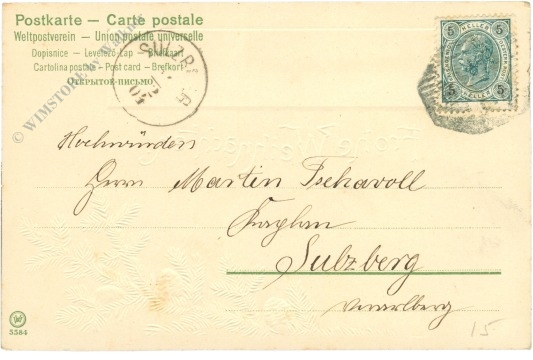 Postkarte — Carte postale
Weltpostverein — Union postale universelle
Dopisnice — Levelező-Lap — Briefkaart
Cartolina postale — Post card — Brefkort
Открытое письмо
© WIMSTORE by
SULZBERG
5
5
HELLER
5
5
HELLER
Hochwürden
Herrn Martin Tschavoll
Kaplan
Sulzberg
Vorarlberg
15
5564